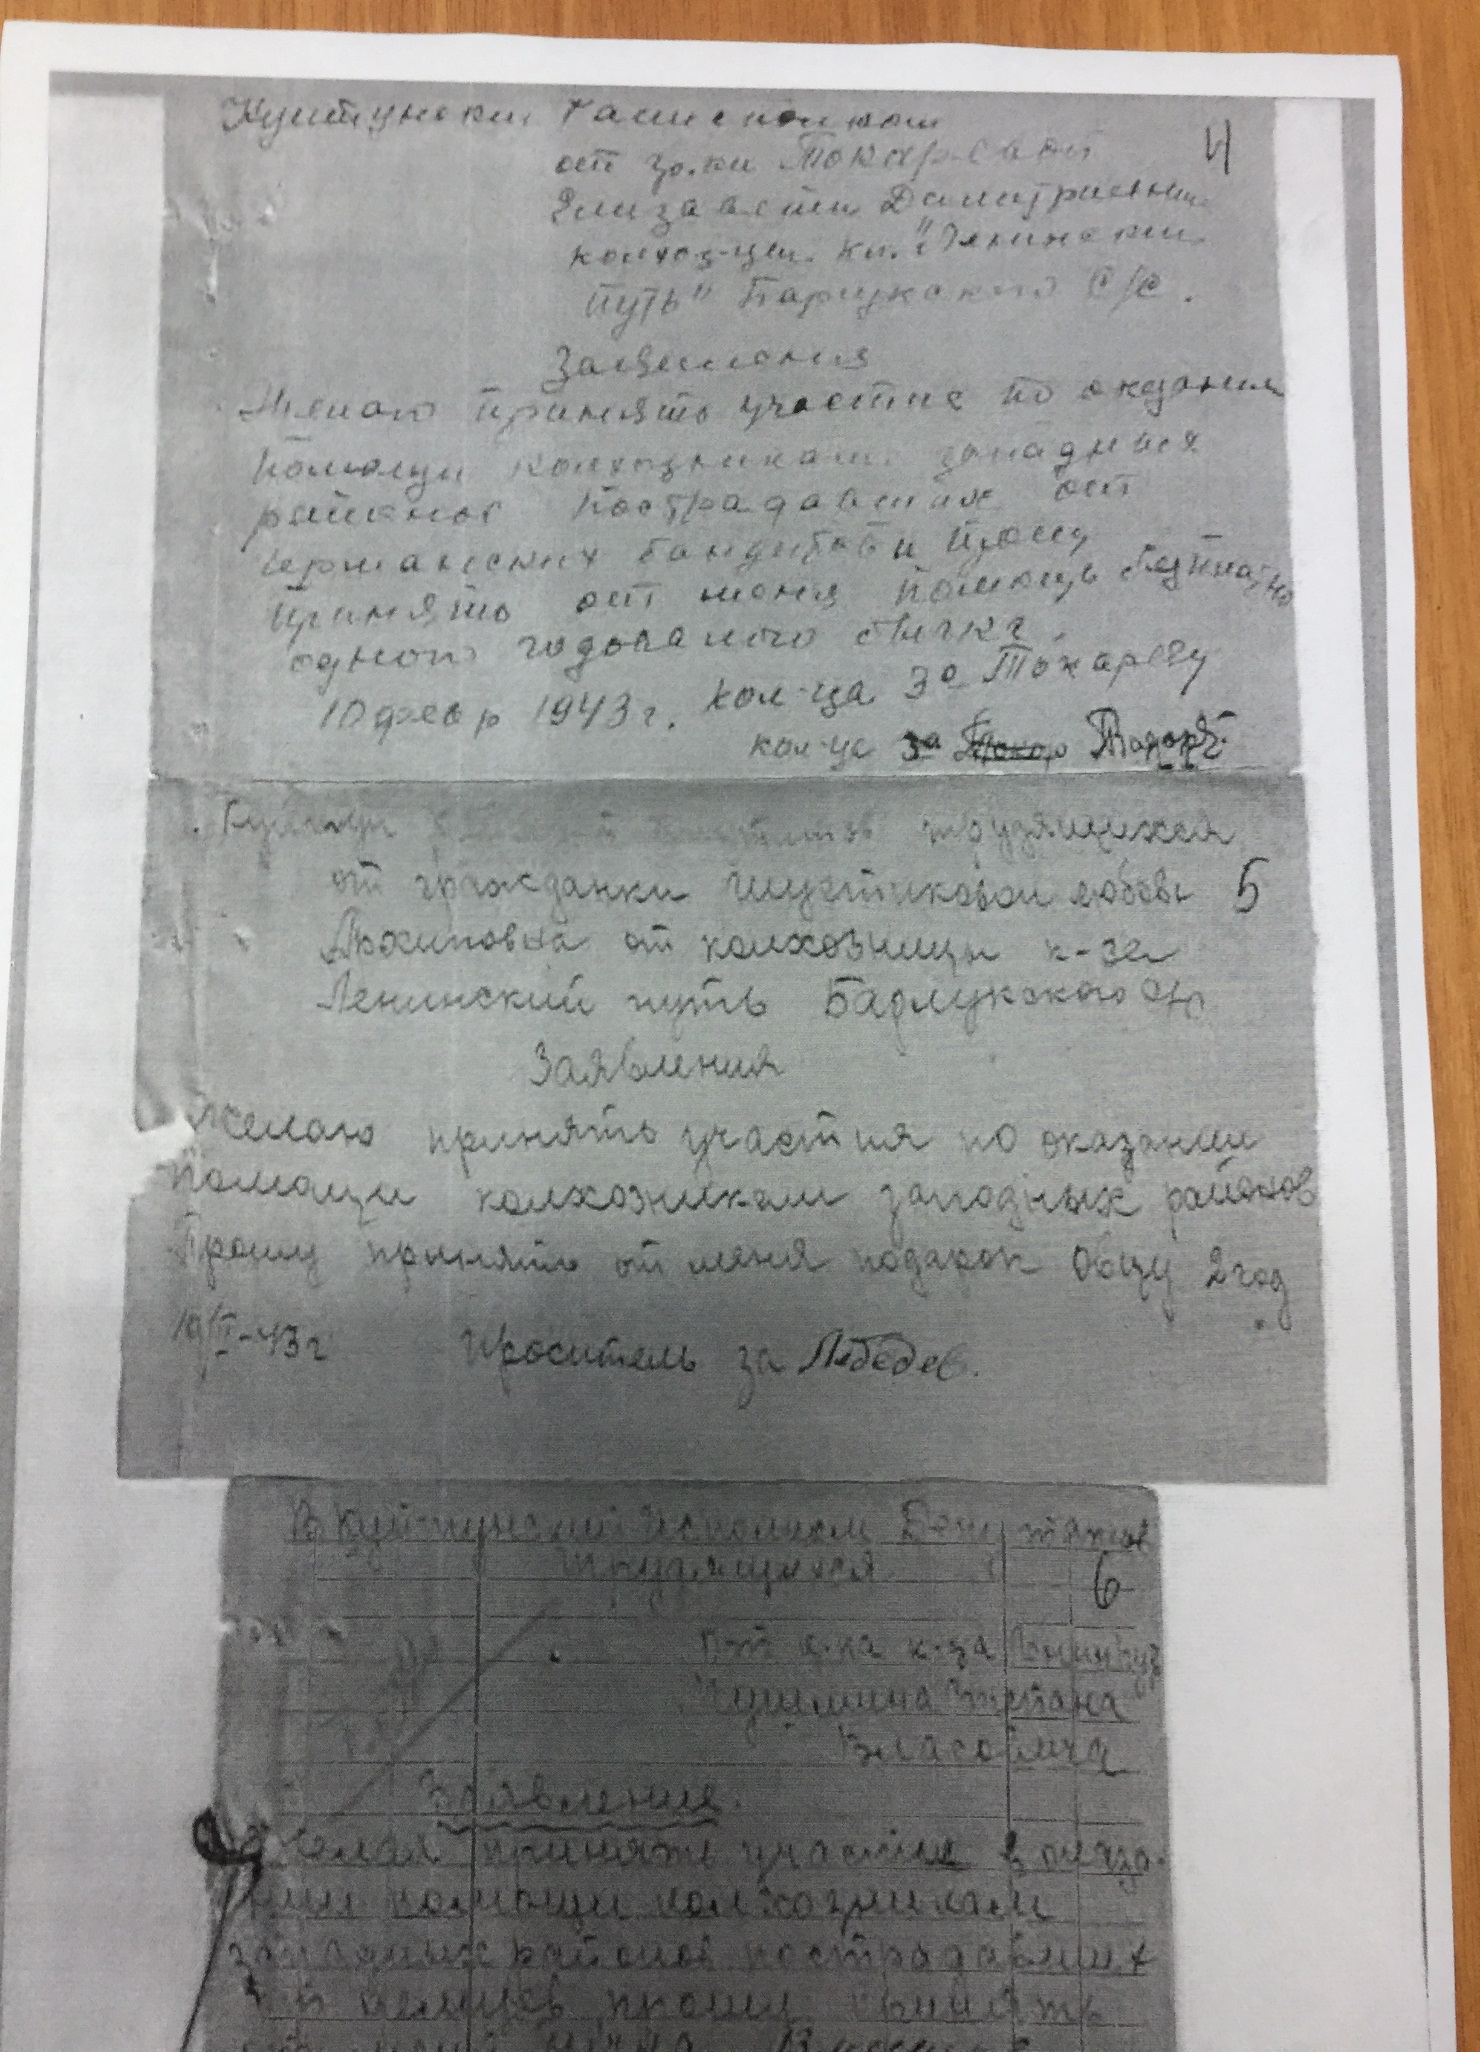 4
от гр.ки Токаревой
Елизаветы Дмитриевны
колхоз-цы. кл. "Ленинский
путь" Барлукского С/С.
Заявления
Желаю принять участие по оказания
помощи колхозникам западных
районов пострадавших от
германских бандитов и прошу
принять от меня помощь бесплатно
одного годовалого бычка.
10 февр 1943 г. кол-ца За Токареву
кол-ца за Токар
трудящихся
от гражданки Шустиковой Любовь 5
Архиповна от колхозницы к-за
Ленинский путь Барлукского с/с
Заявления
Желаю принять участия по оказании
помощи колхозникам западных районов
Прошу принять от меня подарок Овцу 2 год
43 г Проситель за Лебедев.
В Куйтунский исполком Депутатов
Трудящихся 6
От к-за
Степана
Власовича
Заявление.
Желая принять участие в оказа-
нии помощи колхозникам
западных районов пострадавших
немцев, прошу принять
от меня